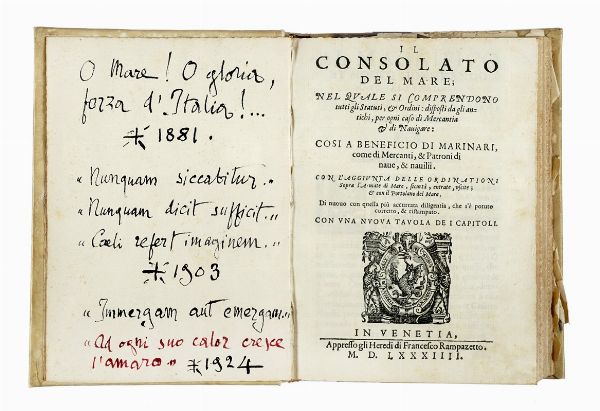 O Mare! O gloria,
forza d'Italia!...
1881.
"Nunquam siccabitur."
"Nunquam dicit sufficit."
"Cœli refert imaginem."
1903
"Immergam aut emergam."
"Ad ogni suo calor cresce
l'amaro" 1924
IL
CONSOLATO
DEL MARE;
NEL QVALE SI COMPRENDONO
tutti gli Statuti, & Ordini: disposti da gli an-
tichi, per ogni caso di Mercantia
& di Nauigare:
COSI A BENEFICIO DI MARINARI,
come di Mercanti, & Patroni di
naue, & nauilii.
CON L'AGGIVNTA DELLE ORDINATIONI
Sopra l'Armate di Mare, sicurtà, entrate, vscite;
& con il Portolano del Mare.
Di nuouo con quella più accurata diligentia, che s'è potuto
corretto, & ristampato.
CON VNA NVOVA TAVOLA DE I CAPITOLI.
IN VENETIA,
Appresso gli Heredi di Francesco Rampazetto.
M. D. LXXXIIII.